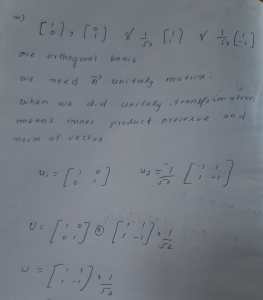 a)
[1 0], [0 1] & 1/√2 [1 1] & 1/√2 [1 -1]
are orthogonal basis
we need a unitary matrix.
when we did unitary transformation
means inner product preserve and
norm of vector
u₁ = [1 0 0 1] u₂ = 1/√2 [1 1 1 -1]
U = [1 0 0 1] ⊗ [1 1 1 -1] * 1/√2
U = [1 1 1 -1] * 1/√2